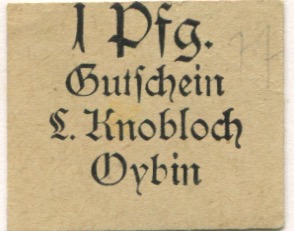 1 Pfg.
Gutschein
L. Knobloch
Oybin